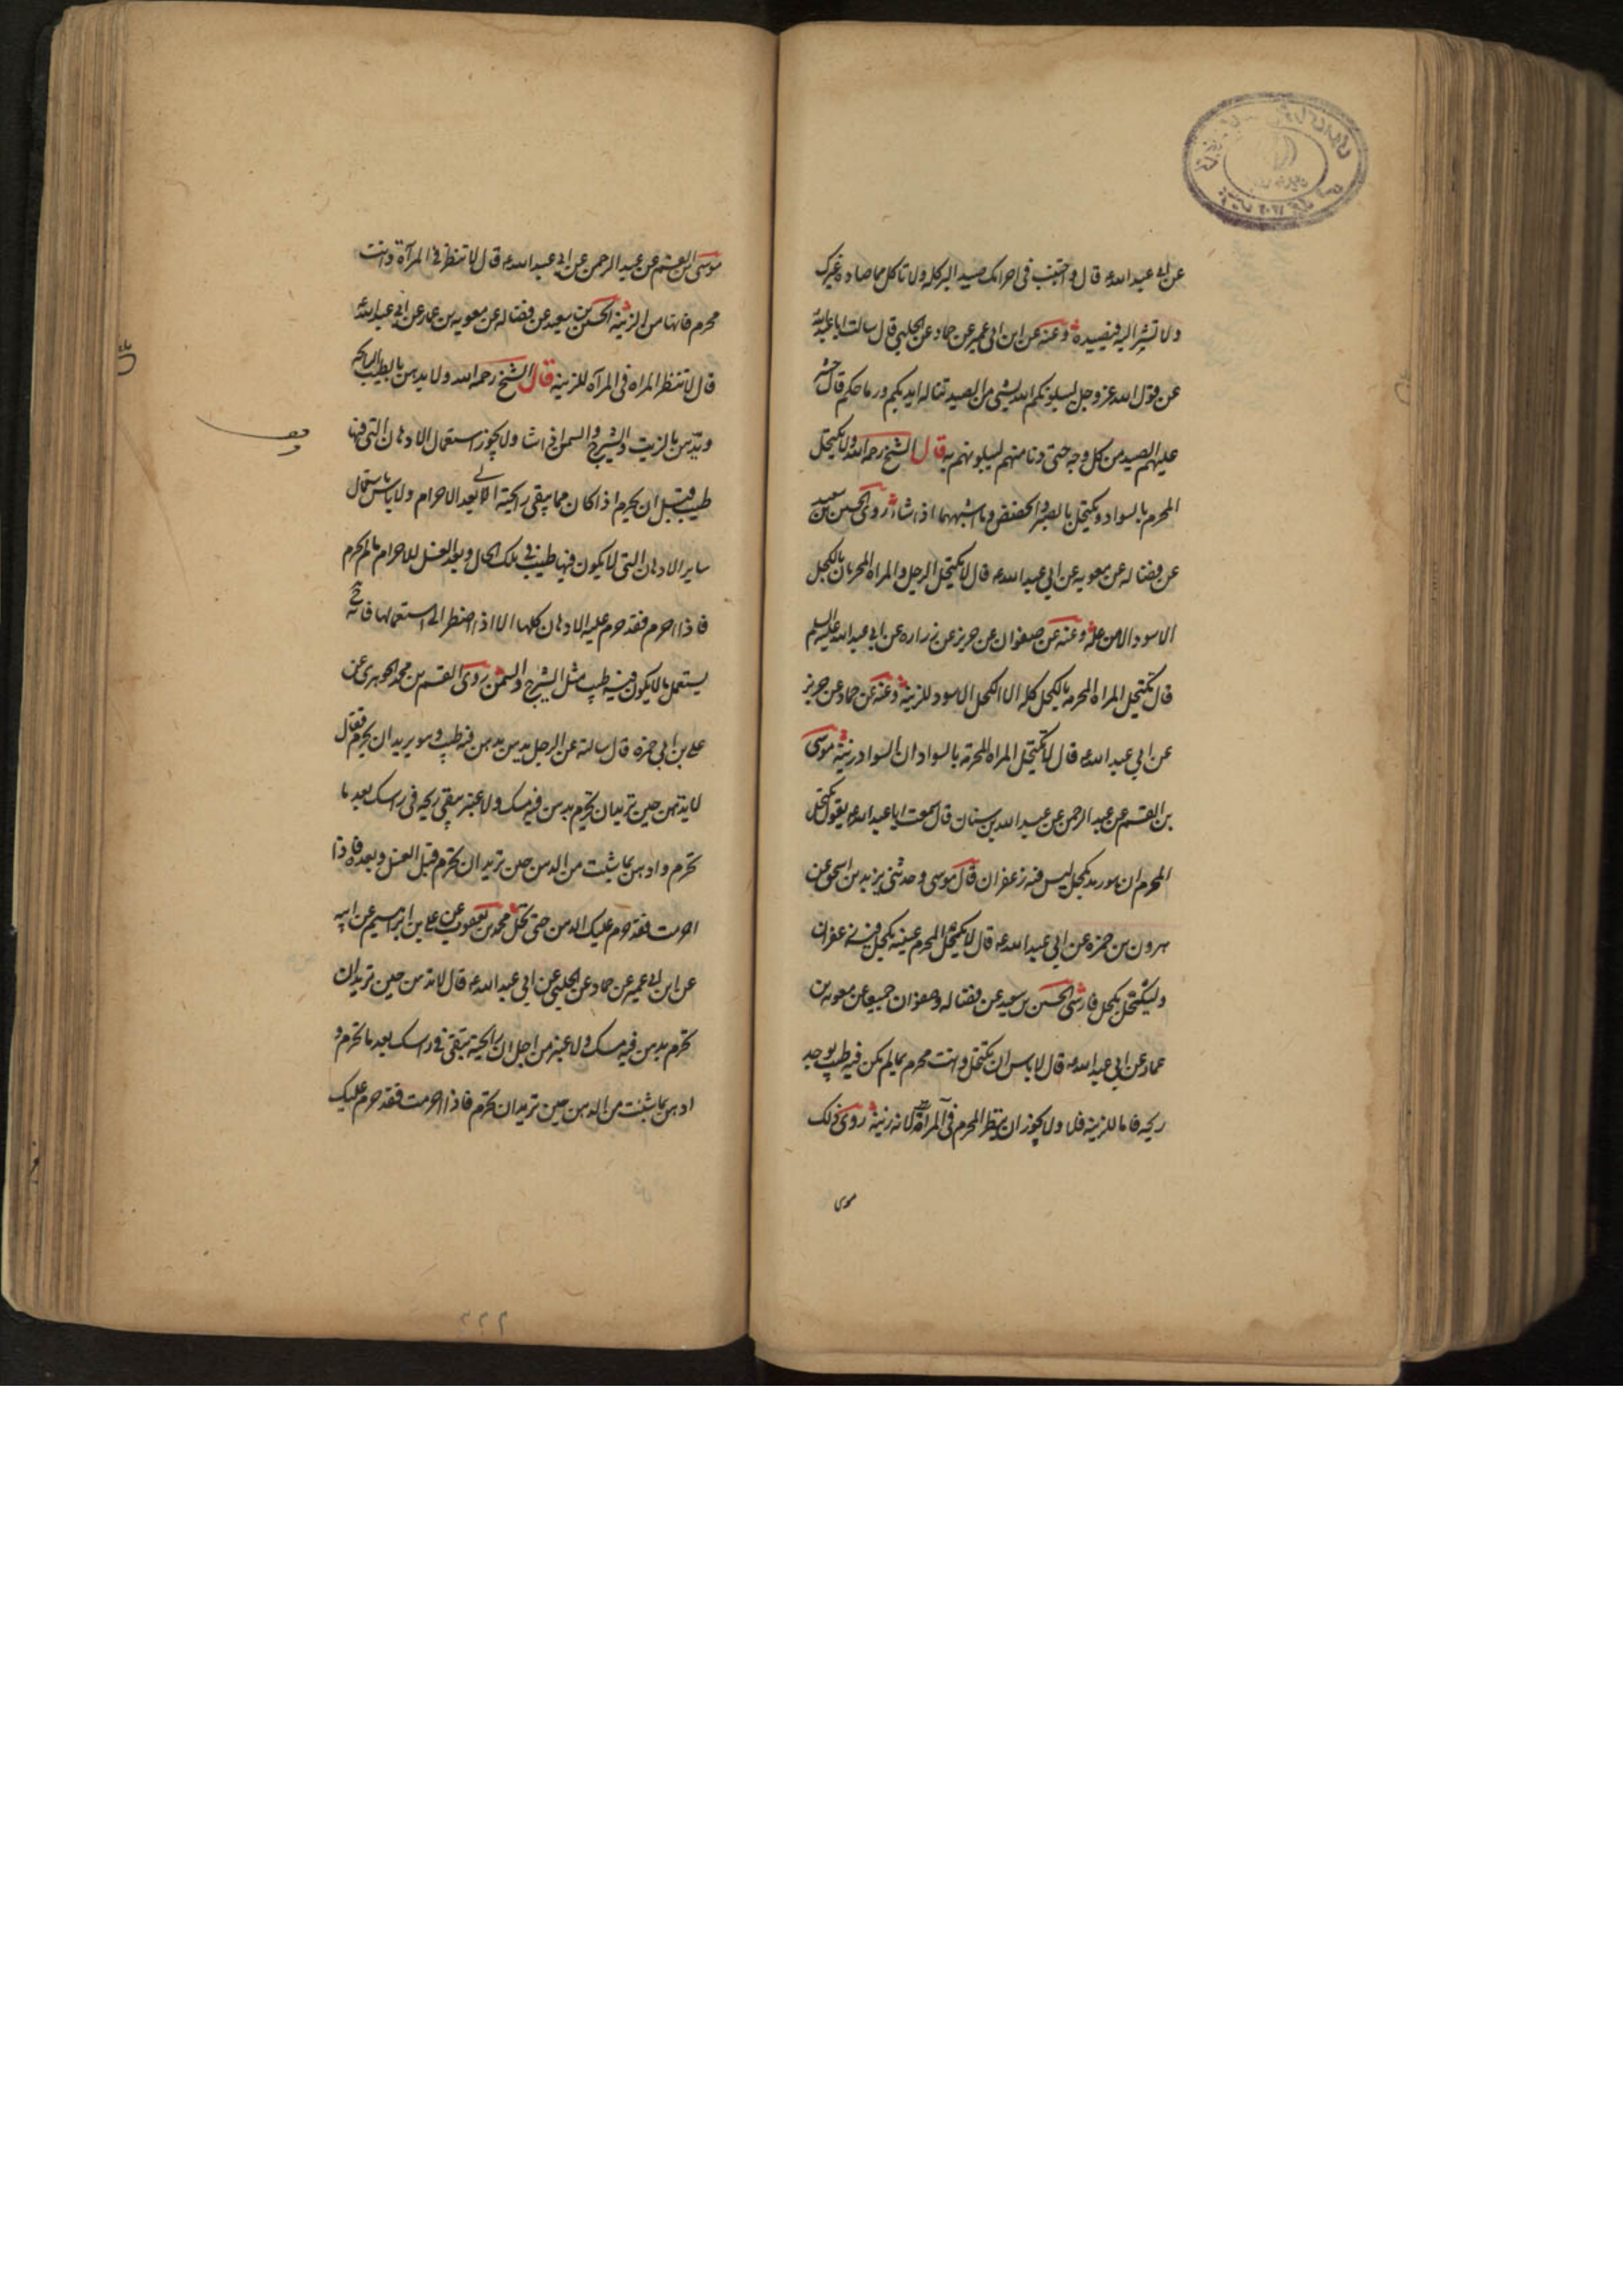 عن ابي عبد الله ع قال واجتنب في احرامك صيد البر كله ولا تاكل مما صاده غيرك
ولا تشير اليه فيصيده وعنه عن ابن ابي عمير عن حماد عن الحلبي قال سالت ابا عبد الله
عن قول الله عز وجل ليبلونكم الله بشي من الصيد تناله ايديكم ورماحكم قال حشر
عليهم الصيد من كل وجه حتى دنا منهم ليبلونهم به قال الشيخ رحمه الله ولا يكتحل
المحرم بالسواد ويكتحل بالصبر والحضض وما اشبههما اذا شاء روى الحسين بن سعيد
عن فضاله عن معويه عن ابي عبد الله ع قال لا يكتحل الرجل والمراه المحرمان بالكحل
الاسود الا من علة وعنه عن صفوان عن حريز عن زراره عن ابي عبد الله عليه السلم
قال تكتحل المراه المحرمه بالكحل كله الا الكحل الاسود للزينة وعنه عن حماد عن حريز
عن ابي عبد الله ع قال لا تكتحل المراه المحرمة بالسواد ان السواد زينة موسى
بن القسم عن عبد الرحمن عن عبد الله بن سنان قال سمعت ابا عبد الله ع يقول يكتحل
المحرم ان هو رمد بكحل ليس فيه زعفران قال موسى وحدثني يزيد بن اسحق عن
هرون بن حمزه عن ابي عبد الله ع قال لا يكتحل المحرم عينيه بكحل فيه زعفران
وليكتحل بكحل فارسي الحسين بن سعيد عن فضاله وصفوان جميعا عن معويه بن
عمار عن ابي عبد الله ع قال لا باس ان تكتحل وانت محرم بما لم يكن فيه طيب يوجد
ريحه فاما للزينه فلا ولا يجوز ان ينظر المحرم في المرآة لانه زينة روى ذلك
موسى
موسى بن القسم عن عبد الرحمن عن ابي عبد الله ع قال لا تنظر في المرآة وانت
محرم فانها من الزينة الحسين بن سعيد عن فضاله عن معويه بن عمار عن ابي عبد الله
قال لا تنظر المراه في المرآه للزينه قال الشيخ رحمه الله ولا يدهن بالطيب الرايحه
ويدهن بالزيت والشيرج والسمن اذا شا ولا يجوز استعمال الادهان التي فيها
طيب قبل ان يحرم اذا كان مما يبقى رايحته الى بعد الاحرام ولا باس باستعمال
ساير الادهان التي لا يكون فيها طيب في تلك الحال وبعد الغسل للاحرام ما لم يحرم
فاذا احرم فقد حرم عليه الادهان كلها الا اذا اضطر الى استعمالها فانه ح
يستعمل ما لا يكون فيه طيب مثل الشيرج والسمن روى القسم بن محمد الجوهري عن
علي بن ابي حمزه قال سالته عن الرجل يدهن بدهن فيه طيب وهو يريد ان يحرم فقال
لا يدهن حين تريد ان تحرم بدهن فيه مسك ولا عنبر يبقى ريحه في راسك بعد ما
تحرم وادهن بما شيت من الدهن حين تريد ان تحرم قبل الغسل وبعده فاذا
احرمت فقد حرم عليك الدهن حتى تحل محمد بن يعقوب عن علي بن ابراهيم عن ابيه
عن ابن ابي عمير عن حماد عن الحلبي عن ابي عبد الله ع قال لا تدهن حين تريد ان
تحرم بدهن فيه مسك ولا عنبر من اجل ان رايحته تبقى في راسك بعد ما تحرم و
ادهن بما شئت من الدهن حين تريد ان تحرم فاذا احرمت فقد حرم عليك
وقف
۲۲۲